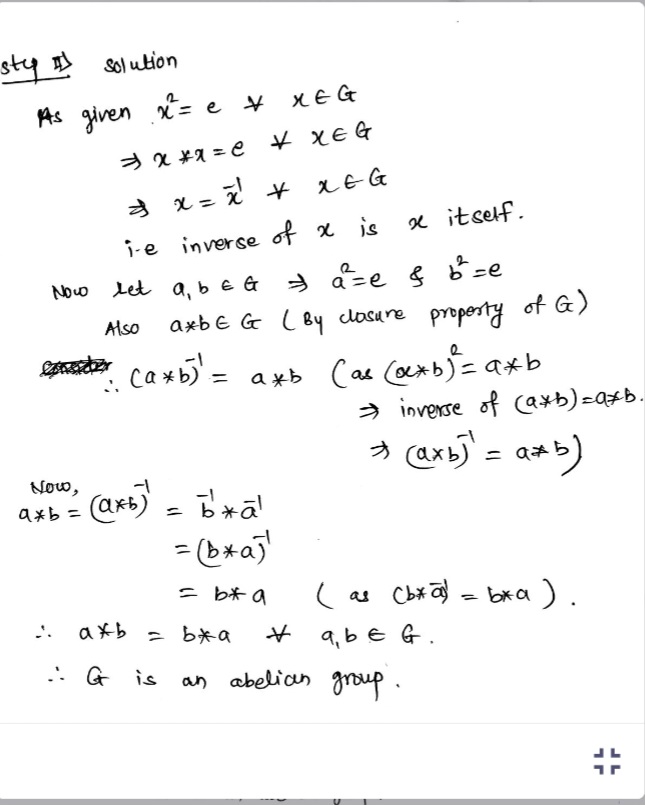 step I) solution
As given x² = e ∀ x ∈ G
⇒ x * x = e ∀ x ∈ G
⇒ x = x⁻¹ ∀ x ∈ G
i.e inverse of x is x itself.
Now let a, b ∈ G ⇒ a² = e & b² = e
Also a*b ∈ G (By closure property of G)
∴ (a*b)⁻¹ = a*b (as (a*b)² = a*b
⇒ inverse of (a*b) = a*b.
⇒ (a*b)⁻¹ = a*b)
Now,
a*b = (a*b)⁻¹ = b⁻¹ * a⁻¹
= (b*a)⁻¹
= b*a (as (b*a)⁻¹ = b*a).
∴ a*b = b*a ∀ a, b ∈ G.
∴ G is an abelian group.